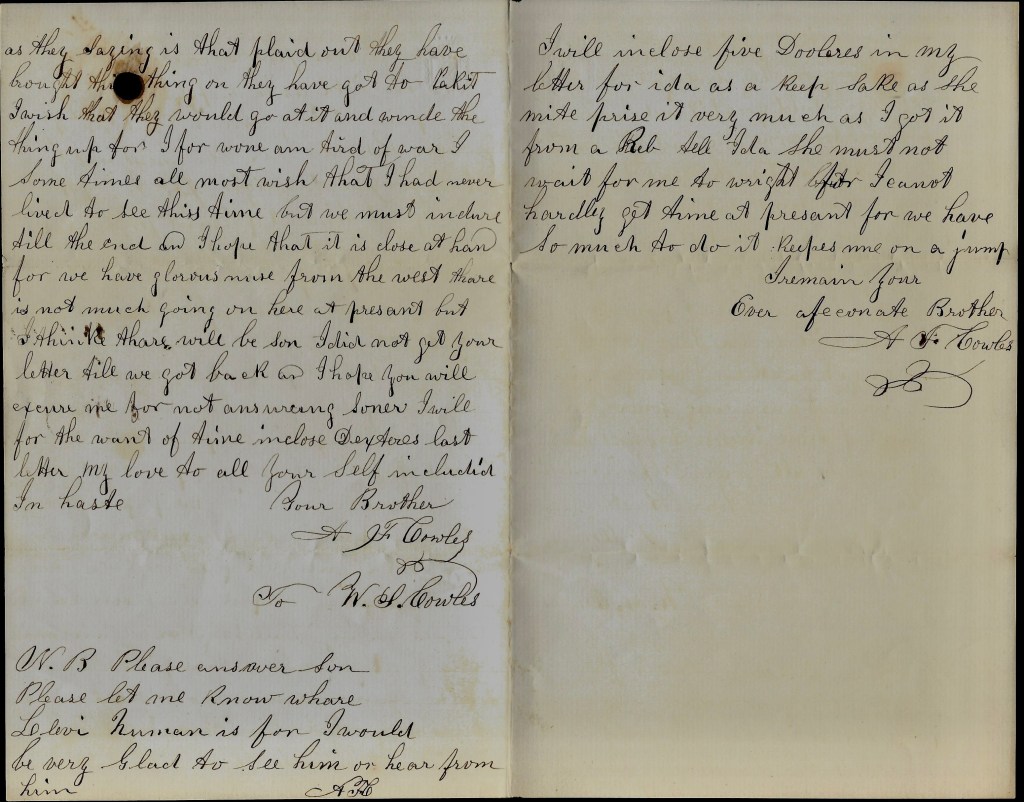 as they Sazing is that plaid out they have
bought this thing on they have got to takit
I wish that they would go at it and winde the
thing up for I for wone am tird of war I
Some times all most wish that I had never
lived to see thiss time but we must indure
till the end an I hope that it is close at han
for we have glorous nuse from the west thare
is not much going on here at presant but
I thinke thare will be son I did not get your
letter till we got back an I hope you will
excuse me for not answreing soner I will
for the want of time inclose Dexteres last
letter my love to all your Self includid
In haste Your Brother
A F Cowles
To W. S. Cowles
N. B Please answer son
Please let me know whare
Llevi is for I would
be very Glad to see him or hear from
him AFC
I will inclose five Dooleres in my
letter for ida as a keep Sake as She
mite prise it very much as I got it
from a Reb tell Ida She must not
wait for me to wright for I canot
hardly get time at presant for we have
So much to do it keepes me on a jump
I remain your
Ever afeconate Brother
A F Cowles